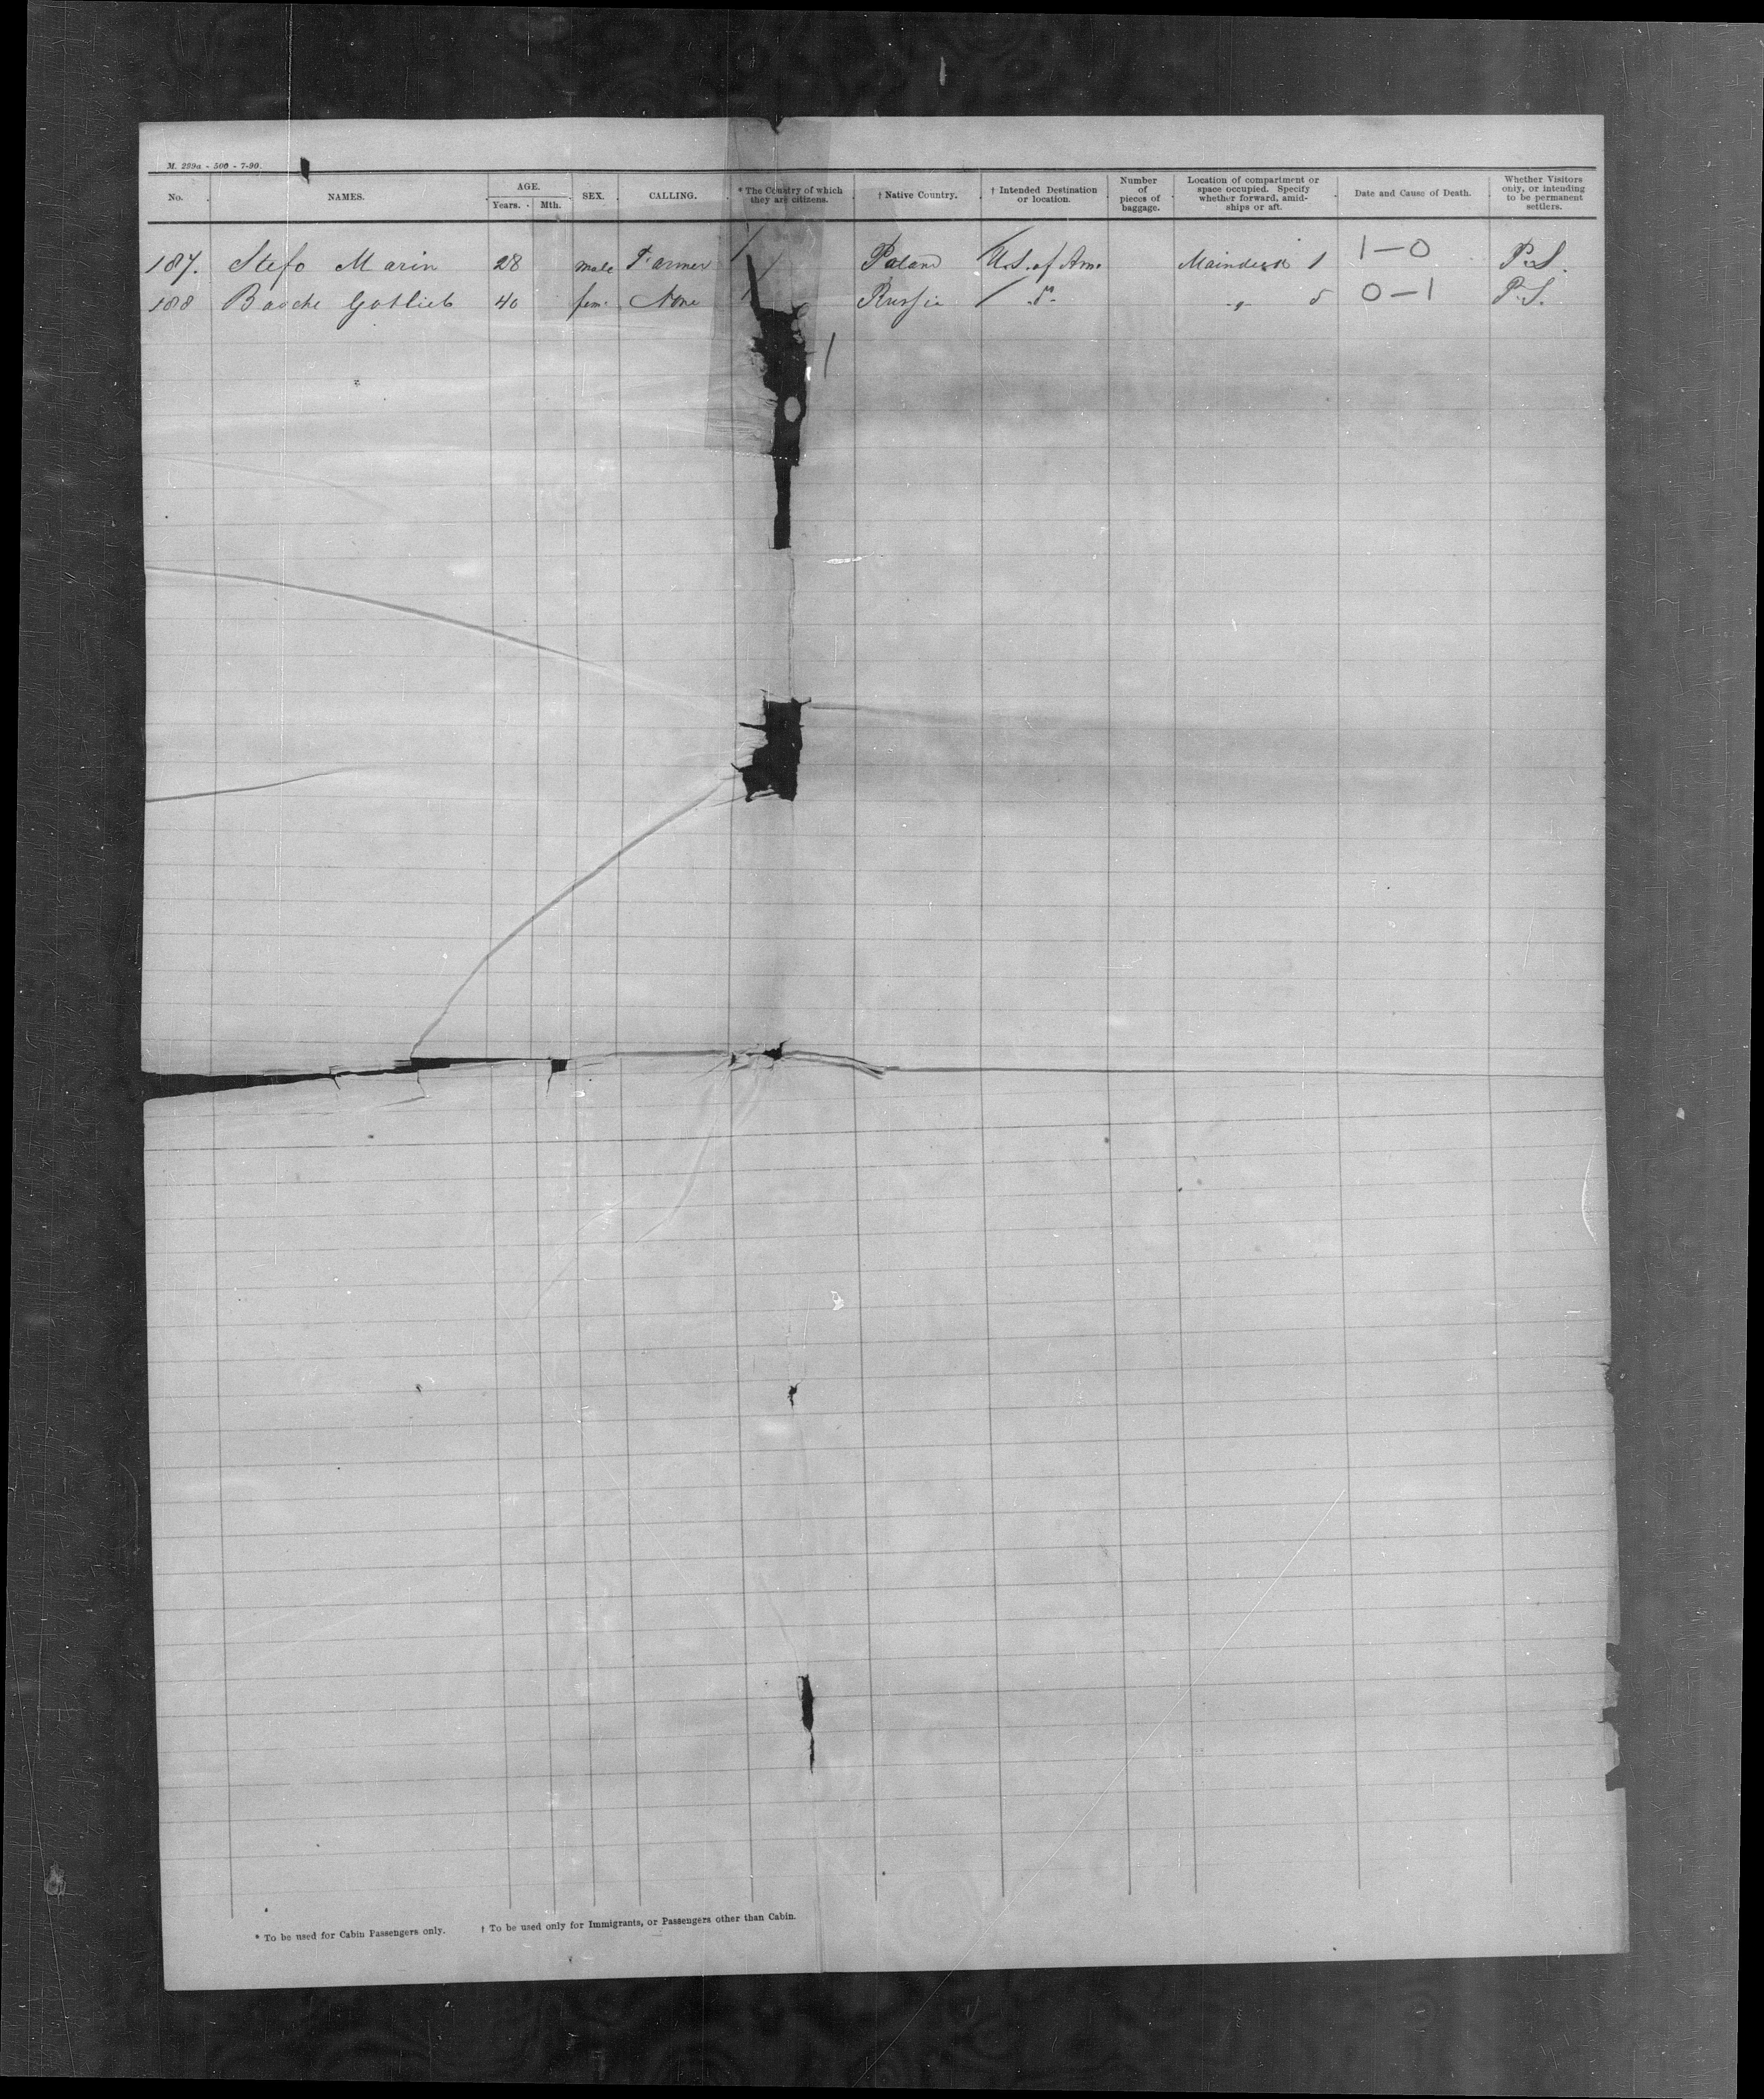 M. 299a - 500 - 7-90.
No. NAMES. AGE. Years. Mth. SEX. CALLING. * The Country of which they are citizens. † Native Country. † Intended Destination or location. Number of pieces of baggage. Location of compartment or space occupied. Specify whether forward, amidships or aft. Date and Cause of Death. Whether Visitors only, or intending to be permanent settlers.
187. Stefo Marin 28 male Farmer Poland U.S. of Am. Maindeck 1 1-0 P.S.
188 Gotlieb 40 fem. None Russia 5 0-1 P.S.
* To be used for Cabin Passengers only. † To be used only for Immigrants, or Passengers other than Cabin.